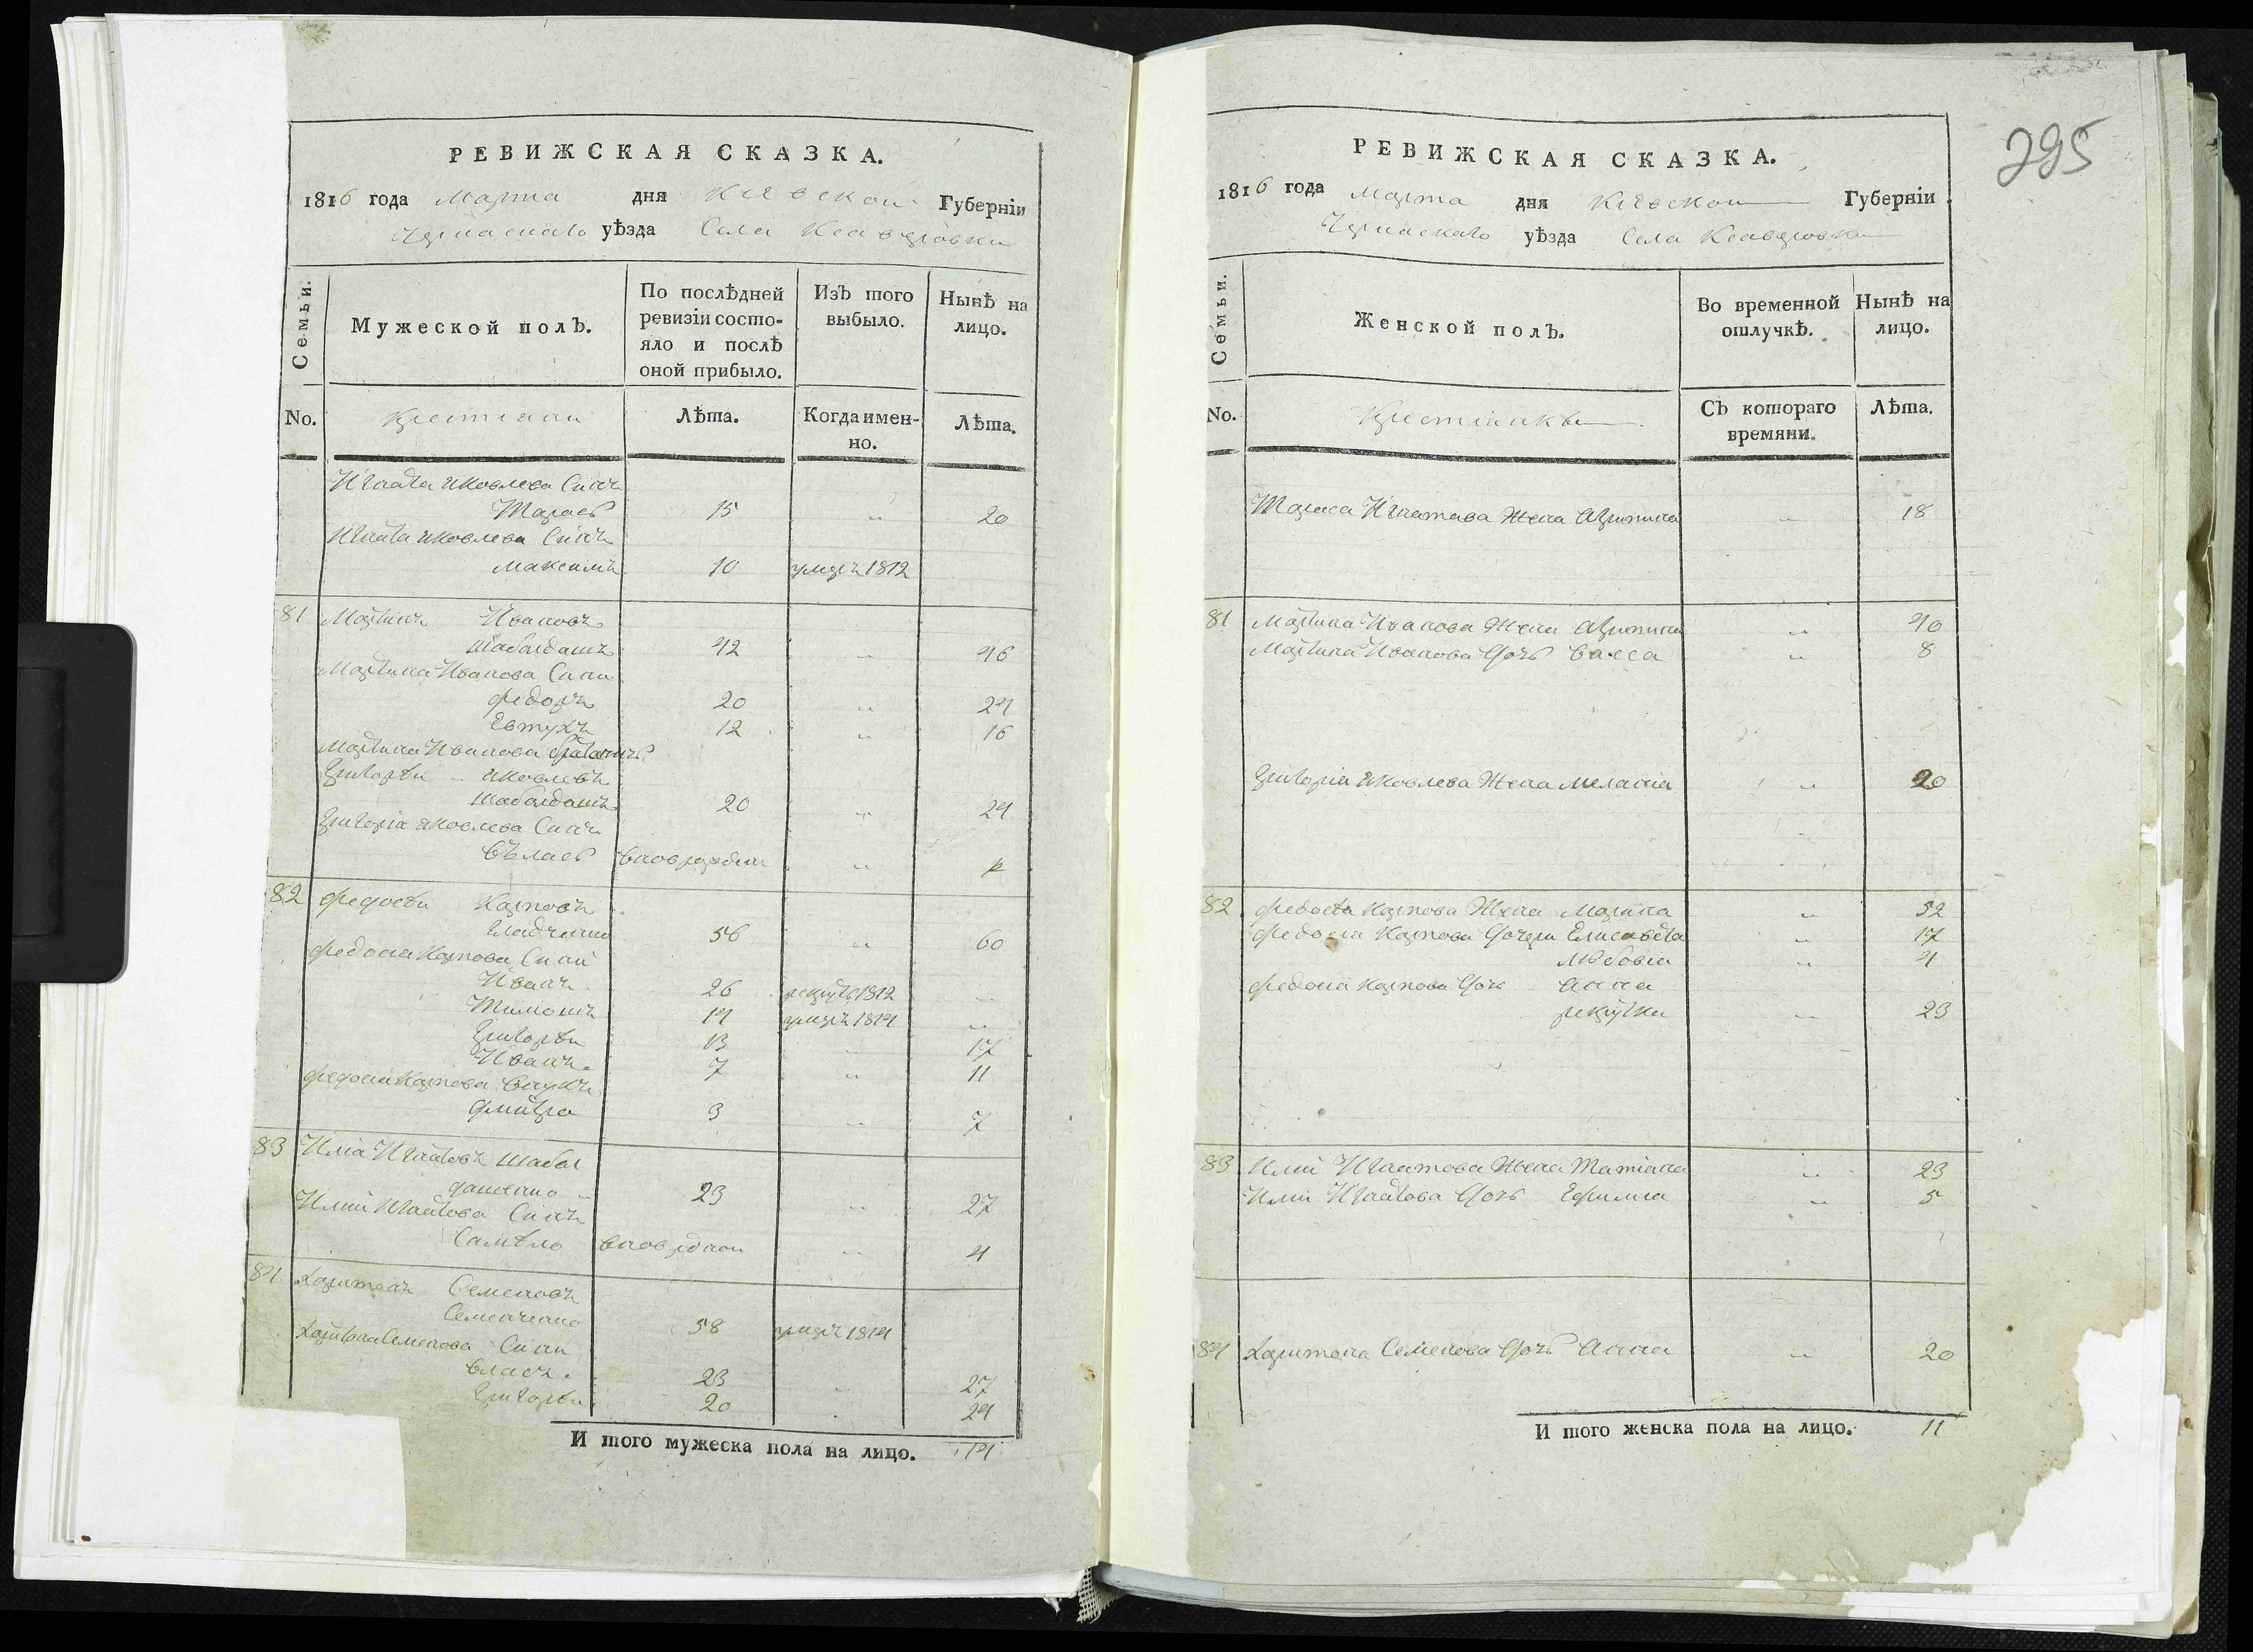 РЕВИЖСКАЯ СКАЗКА.
1816 года Марта дня Киевской Губерніи
Черкаскаго уѣзда Села
Семьи.
Мужеской полъ.
По послѣдней ревизіи состояло и послѣ оной прибыло.
Изъ того выбыло.
Нынѣ на лицо.
No.
Крестіани
Лѣта.
Когда именно.
Лѣта.
Игната Яковлева Синъ
Тарасъ 15 „ 20
Игната Яковлева Синъ
Максимъ 10 умеръ 1812
81 Мартинъ Ивановъ
Шабалдашъ 42 „ 46
Мартина Иванова Сини
Федоръ 20 „ 24
Евтухъ 12 „ 16
Мартина Иванова братаничъ
Григорѣи Яковлевъ
Шабалдашъ 20 „ 24
Григоріа Яковлева Синъ
Вѣласъ вновърожденъ „
82 Федосѣи Карповъ
56 „ 60
Федосиа Карпова Сини
Иванъ 26 рекрутъ 1812 „
Тимошъ 14 умеръ 1814 „
Григорѣи 13 „ 17
Иванъ 7 „ 11
Федосиа Карпова Внукъ
Дмитро 3 „ 7
83 Илиа Игнатовъ Шабал
дашенко 23 „ 27
Илии Игнатова Синъ
Самѣло „ 4
84 Харитонъ Семеновъ
Семенченко 58 умеръ 1814
Харитона Семенова Сини
Власъ 23 „ 27
Григорѣи 20 „ 24
И того мужеска пола на лицо. 14
295
РЕВИЖСКАЯ СКАЗКА.
1816 года Марта дня Киевской Губерніи
Черкаскаго уѣзда Села
Семьи.
Женской полъ.
Во временной отлучкѣ.
Нынѣ на лицо.
No.
Крестіанкы
Съ котораго времяни.
Лѣта.
Тараса Игнатова Жена Агрипина „ 18
81 Мартина Иванова Жена Агрипина „ 40
Мартина Иванова Дочь Васса „ 8
Григоріа Яковлева Жена Меланіа „ 20
82 Федосѣа Карпова Жена Марина „ 52
Федосиа Карпова Дочери Елисавета „ 17
Любовиа „ 4
Федосиа Карпова Дочь Анна
рекрутка „ 23
83 Илии Игнатова Жена Татіана „ 23
Илии Игнатова Дочь Ефимиа „ 5
84 Харитона Семенова Дочь Анна „ 20
И того женска пола на лицо. 11